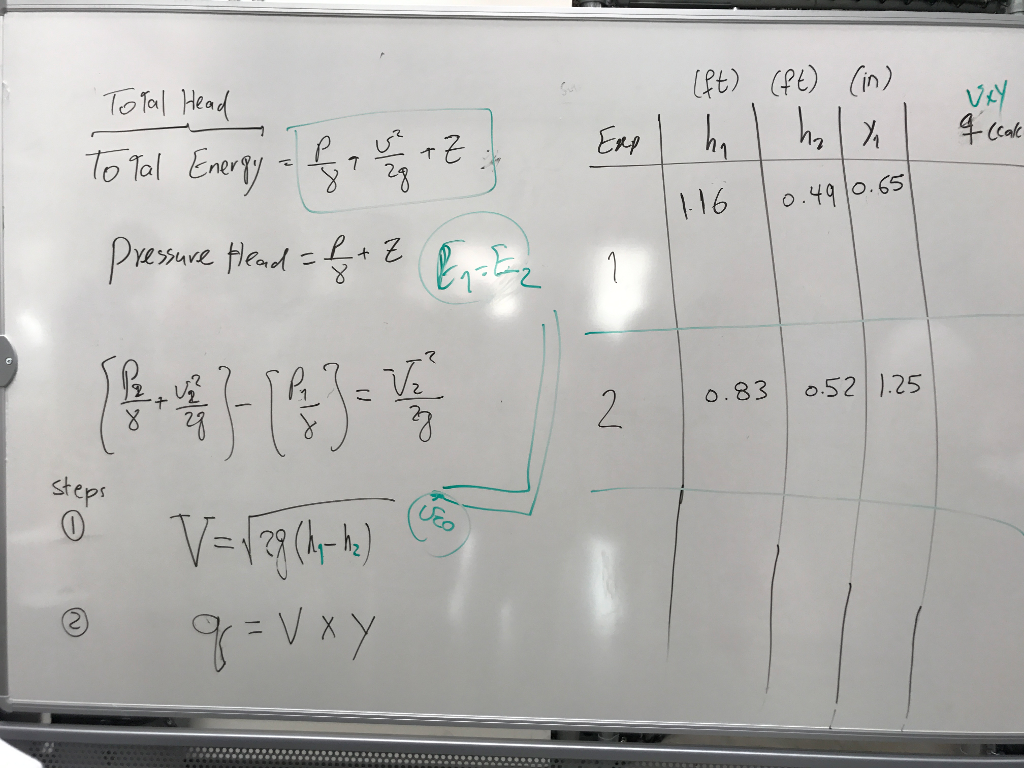 Total Head
Total Energy = P/γ + v²/2g + Z
Pressure Head = P/γ + Z
E₁ = E₂
[P₂/γ + v₂²/2g] - [P₁/γ] = V₂²/2g
Steps
① V = √2g(h₁-h₂)
② q = V x y
(ft) (ft) (in)
VxY
Exp h₁ h₂ Y₁ q (calc
1 1.16 0.49 0.65
2 0.83 0.52 1.25